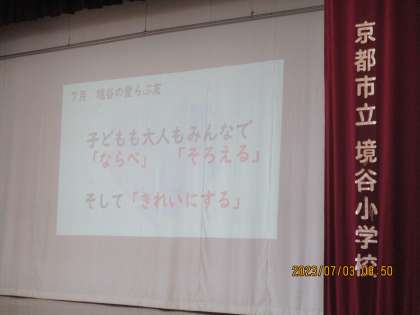 ７月　境谷の重らぶ友
子どもも大人もみんなで
「ならべ」　「そろえる」
そして「きれいにする」
京都市立 境谷小学校
2023/07/03 08:50